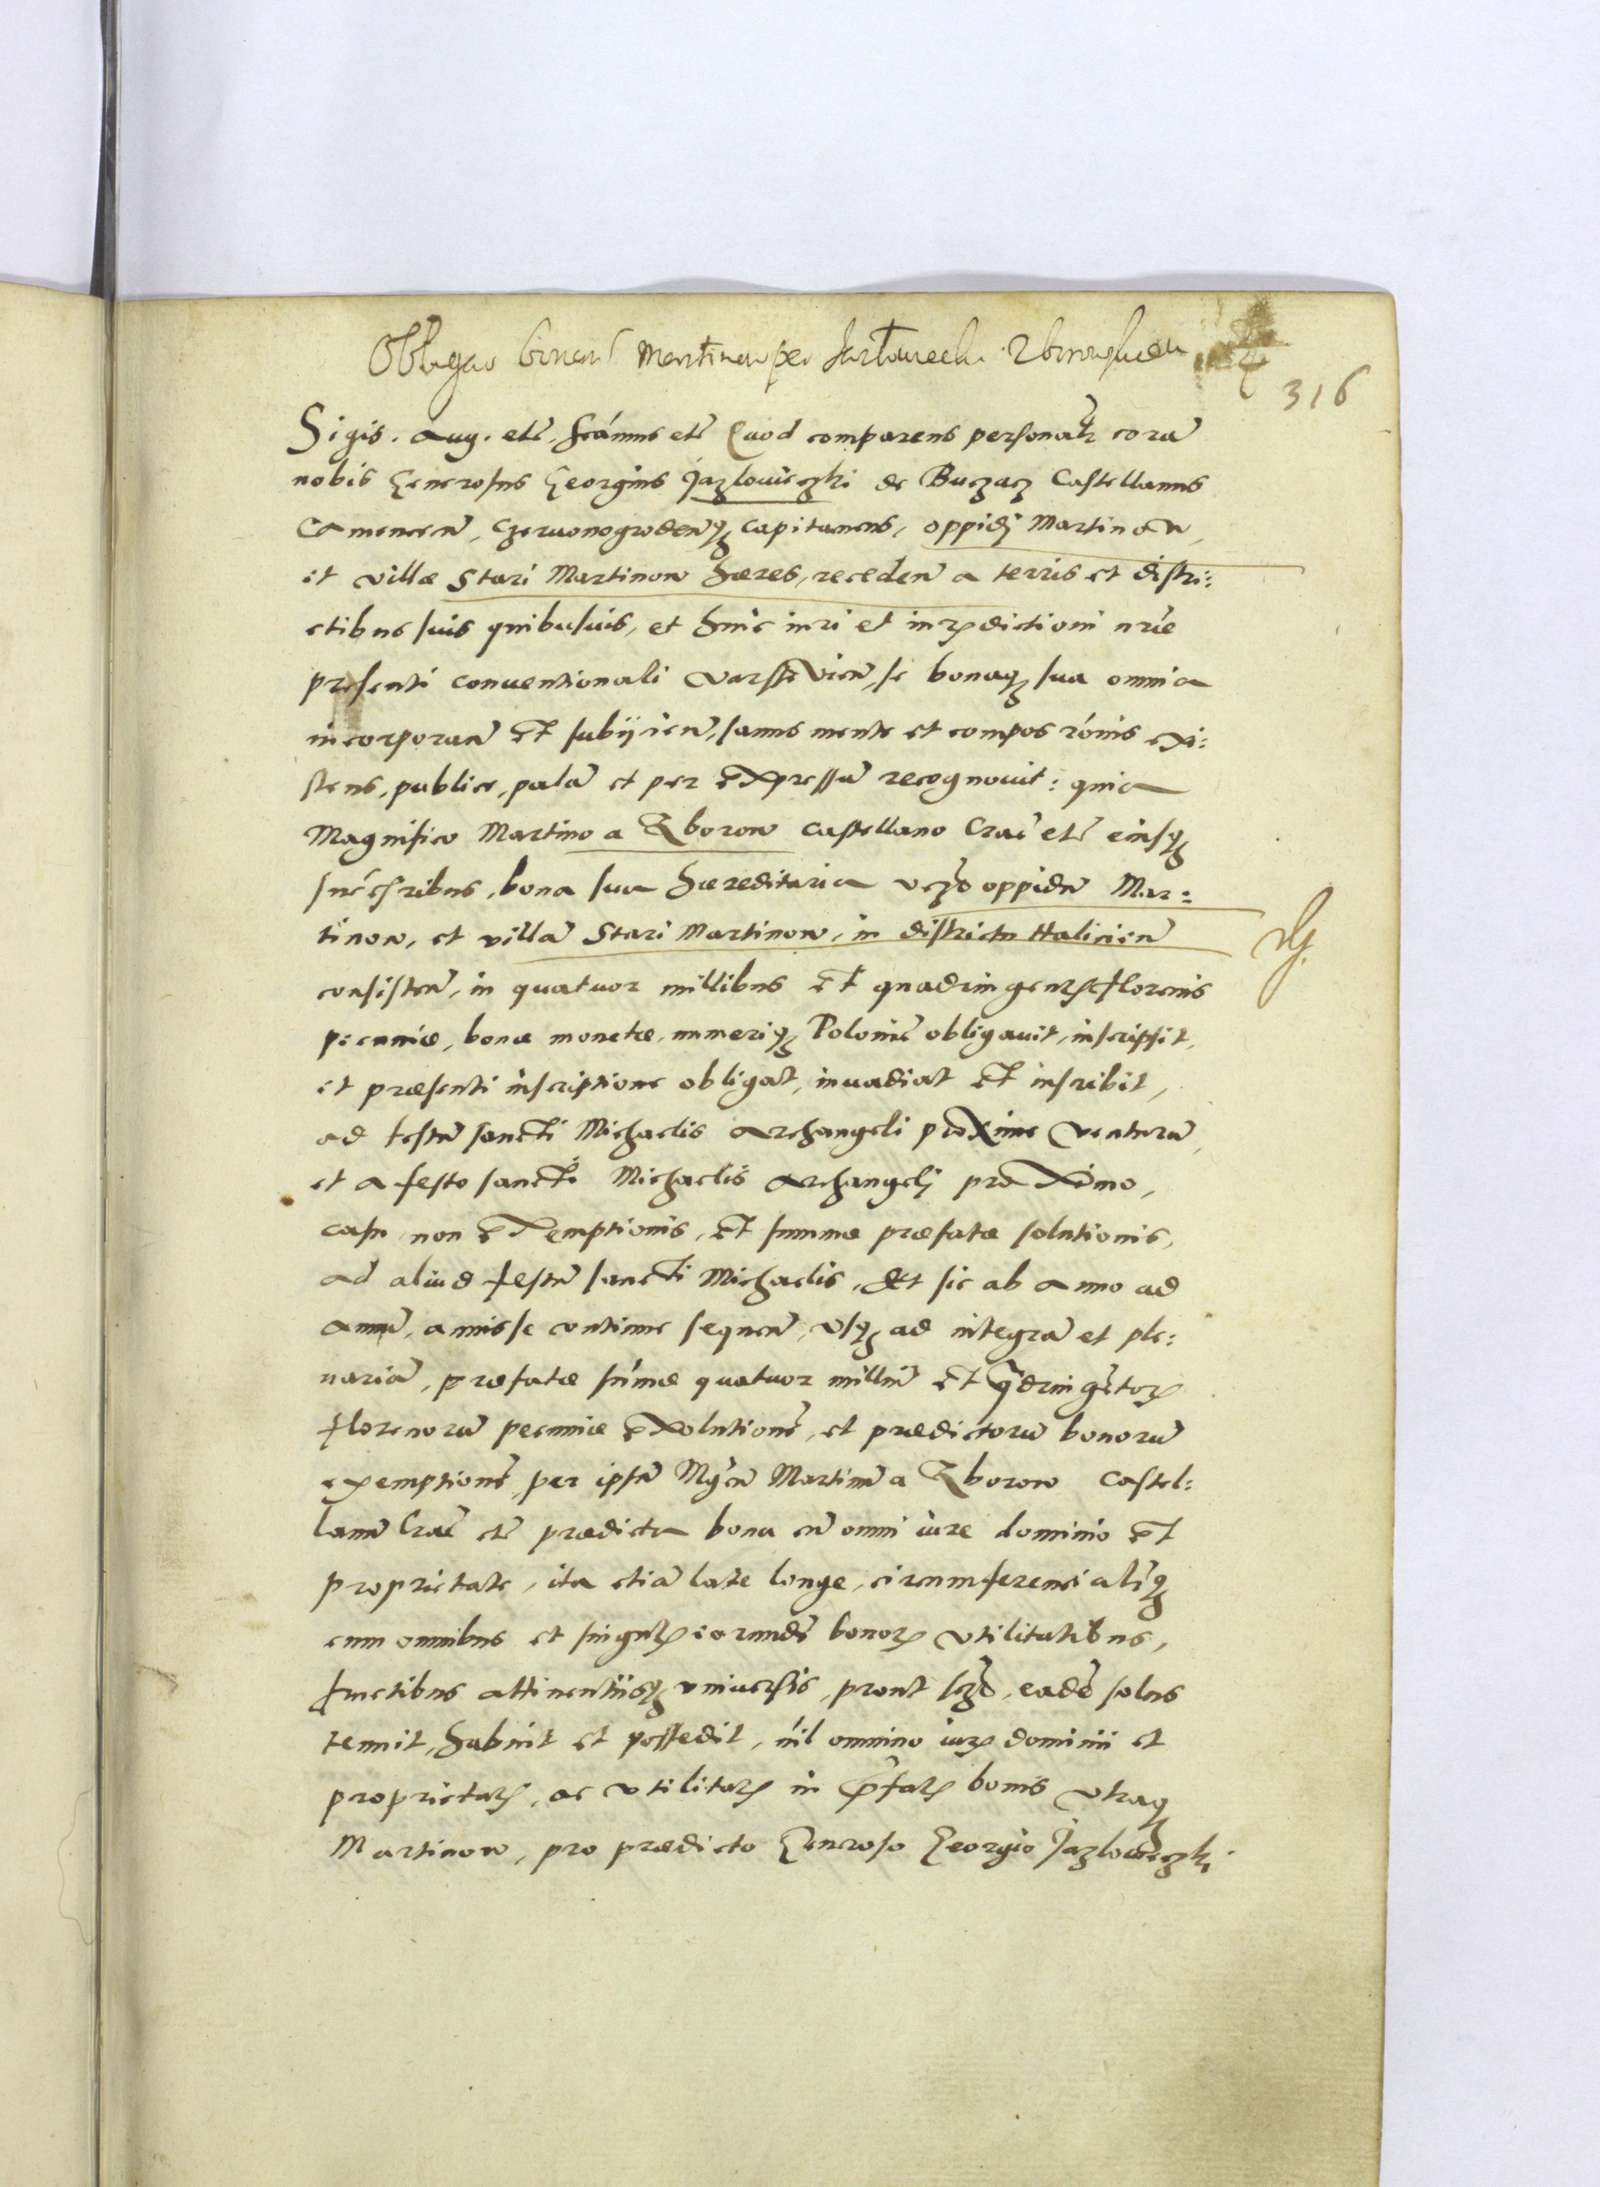 316
Sigis. Aug. etc̃. Scámus etc̃ Quod comparens personalr̃ corã
nobis Generosus Georgius Jazlouieczki de Buczacz Castellanus
Camenecen̄, Czeruonogroden̄q₃ Capitaneus, oppidj Martinow,
et villæ Stari Martinow hæres, receden̄ a terris et distri:
ctibus suis quibusuis, et huic iuri et iurẏdictioni nrẽ
presenti conuentionali Varsseuien̄, se bonaq₃ sua omnia
incorporan̄ et subijcien̄, sanus mente et compos rónis exi:
stens, publice, palã et per expressũ recognouit: quia
Magnifico Martino a Zborow Castellano Crac̃ etc̃ eiusq₃
succesoribus, bona sua hæreditaria vcz̃ oppidũ Mar:
tinow, et villã Stari Martinow, in districtu Halicien̄
consisten̄, in quatuor millibus et quadringentis florenis
pecuniæ, bonæ monetæ, numeriq₃ Poloniĉ obligauit, inscripsit,
et præsenti inscriptione obligat, inuadiat et inscribit,
ad festũ sancti Michaelis Archangeli proxime venturũ,
et a festo sancti Michaelis Archangelj proximo,
casu non exemptionis, et summæ præfatæ solutionis,
ad aliud festũ sancti Michaelis. Et sic ab anno ad
annũ, a mis se continue sequen̄, vsq₃ ad integrã et ple:
nariã, præfatæ súmæ quatuor milliũ et qũdringẽtoꝝ
florenorũ pecuniæ exolutionẽ, et prædictorũ bonorũ
exemptionẽ, per ipsũ Mg̃cũ Martinũ a Zborow Castel:
lanũ Crac̃ etc̃ prædicta bona cũ omni iure dominio et
proprietate, ita etiã late longe, circumferencialiterq₃
cum omnibus et singulis eorundẽ bonoꝝ vtilitatibus,
fructibus attinentiisq₃ vniuersis, prout sc̃z, eadẽ solus
tenuit, habuit et possedit, nil omnino iuris dominii et
proprietatis, ac vtilitatis in p̃fatis bonis vtraq₃
Martinow, pro prædicto Generoso Georgio Jazlouieczki